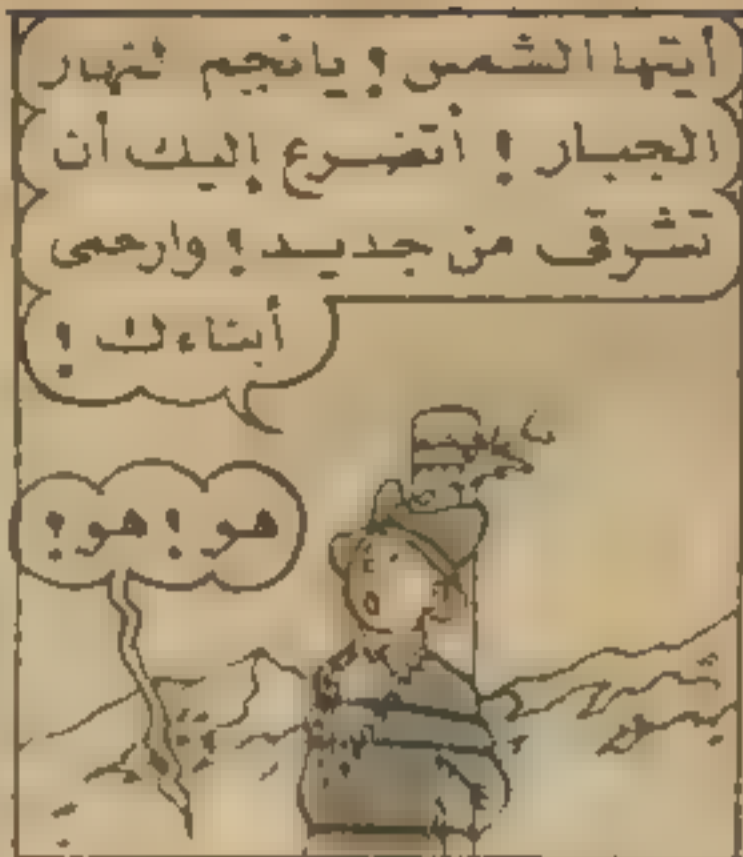 أيتها الشمس ! يا نجم النهار
الجبار ! أتضرع إليك أن
تشرق من جديد ! وارحمى
أبناءك !
هو ! هو !